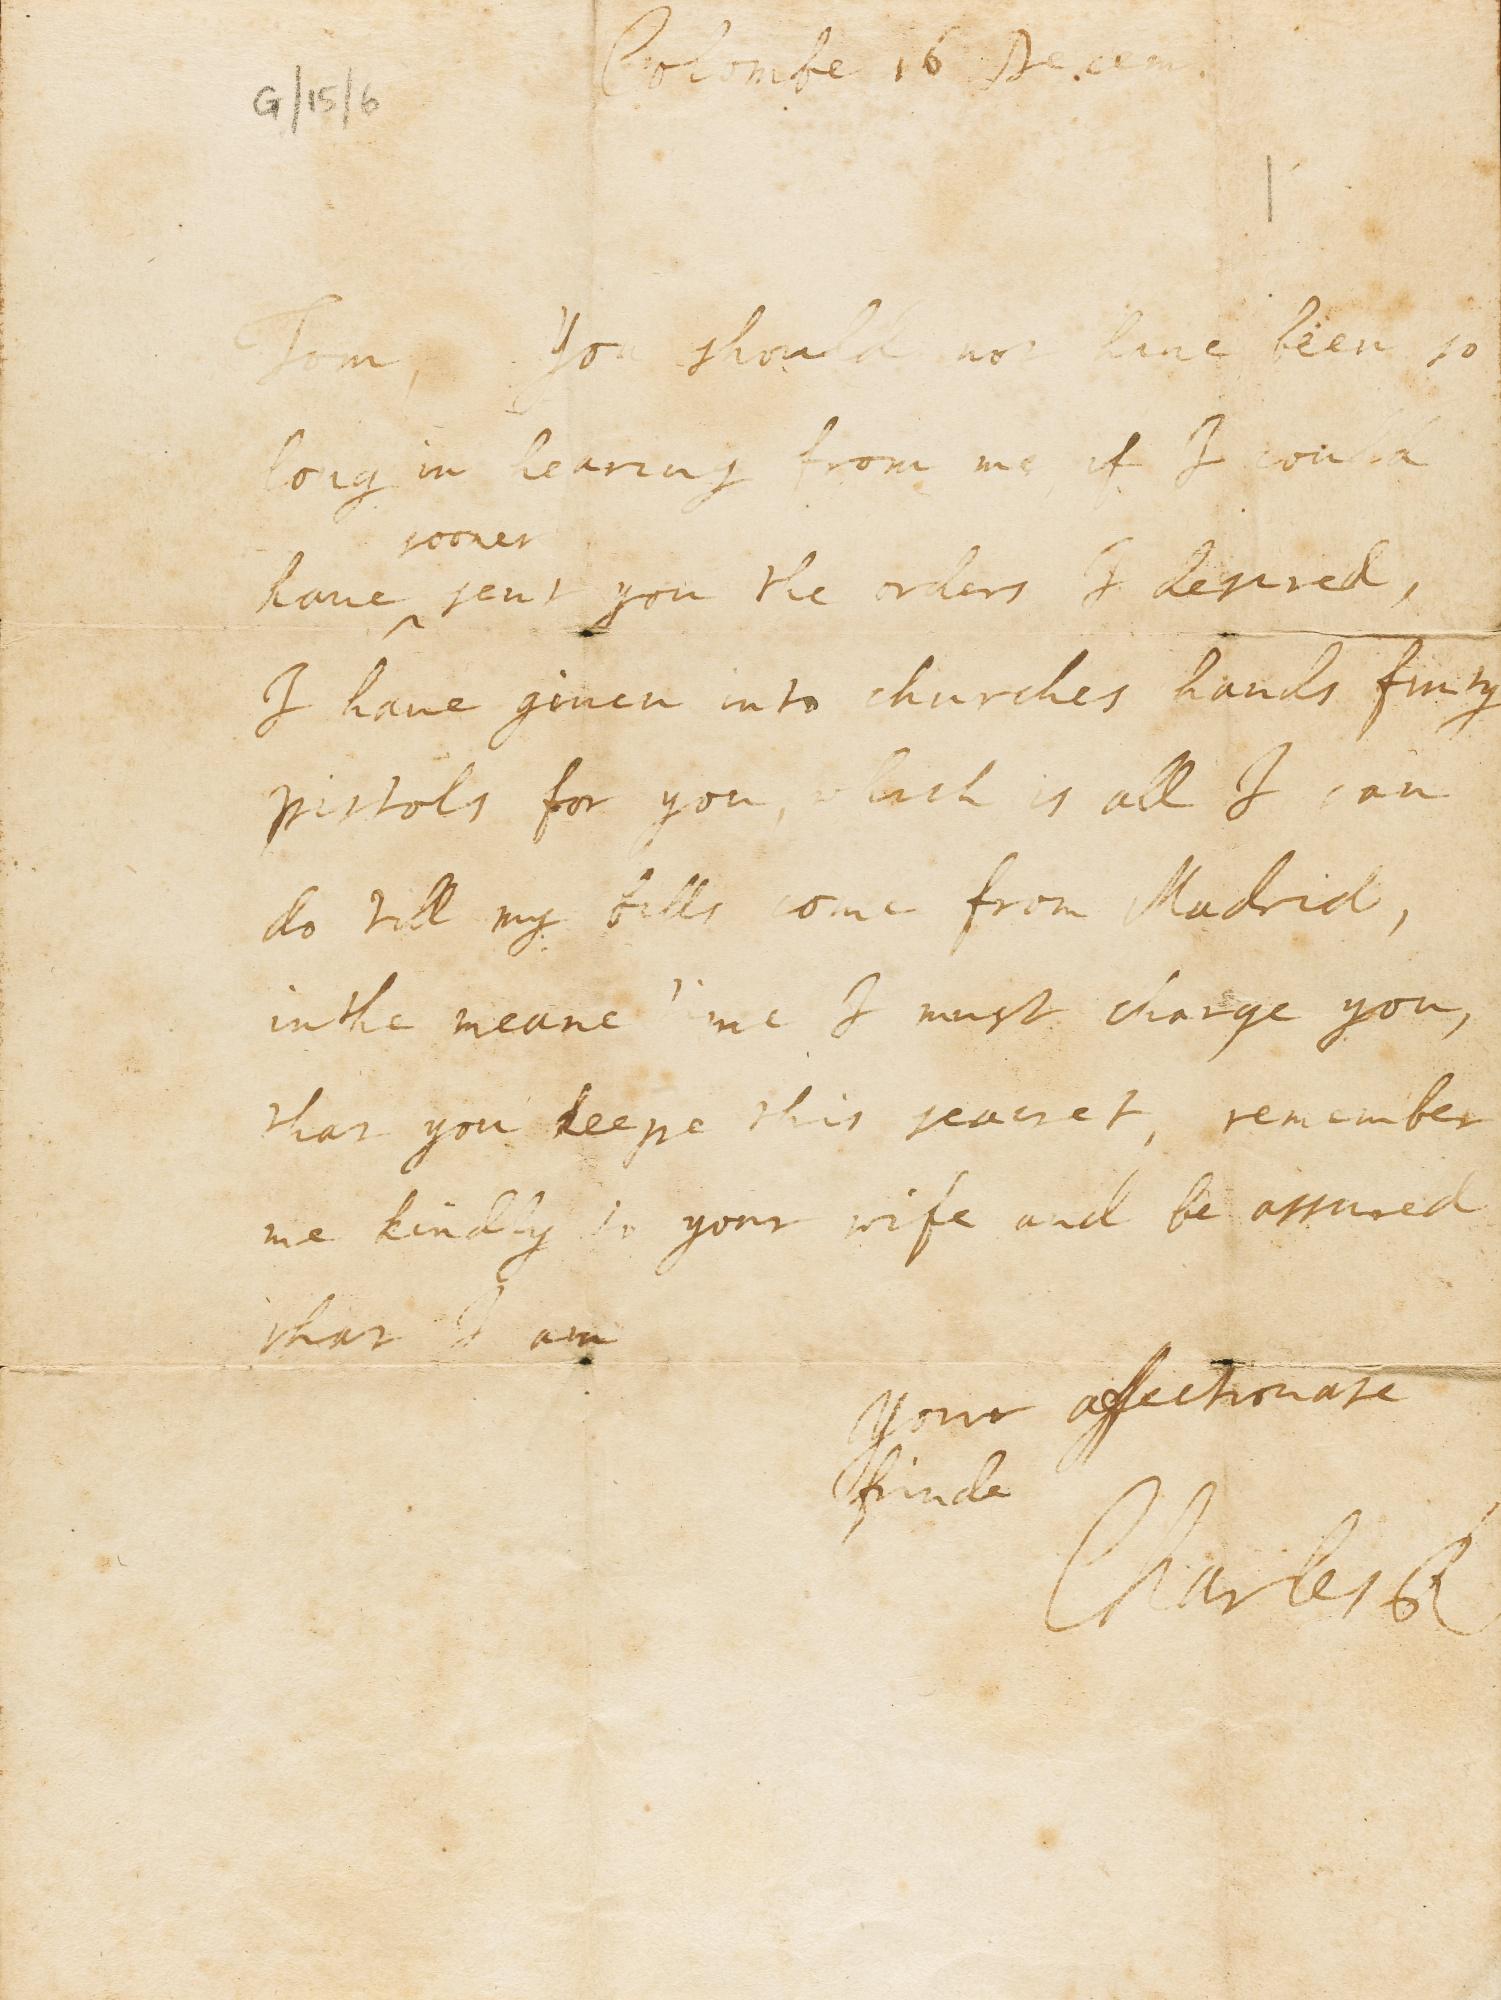 Colombe 16 Decem.
G/15/6
Tom, You should not have been so
long in hearing from me if I could
sooner
have ^ sent you the orders I desired,
I have given into churches hands
pistols for you, which is all I can
do till my bills come from Madrid,
in the meane time I must charge you,
that you keepe this seacret, remember
me kindly to your wife and be assured
that I am
your affectionate
frinde
Charles R